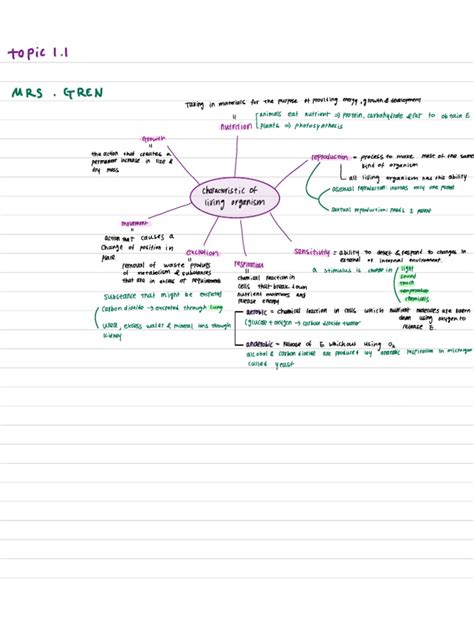 Topic 1.1
MRS. GREN
Taking in materials for the purpose of providing energy, growth & development
nutrition
animals eat nutrient ⇒ protein, carbohydrate & fat to obtain E
plants ⇒ photosynthesis
Growth
the action that creates a
permanent increase in size &
dry mass
reproduction = process to make more of the same
kind of organism
all living organism has this ability
asexual reproduction: involves only one parent
sexual reproduction: needs 2 parent
characteristic of
living organism
movement
action that causes a
change of position in
place
excretion
removal of waste products
of metabolism & substances
that are in excess of requirements
Substance that might be excreted
carbon dioxide → excreted through lung
urea, excess water & mineral ions through
kidney
respiration
chemical reaction in
cells that break down
nutrient molecules and
release energy
sensitivity = ability to detect & respond to changes in
external or internal environment.
a stimulus is change in
light
sound
touch
temperature
chemicals
aerobic = chemical reaction in cells which nutrient molecules are been
down using oxygen to
release E.
(glucose + oxygen → carbon dioxide + water
anaerobic = release of E without using O2
alcohol & carbon dioxide are produced by anaerobic respiration in
called yeast